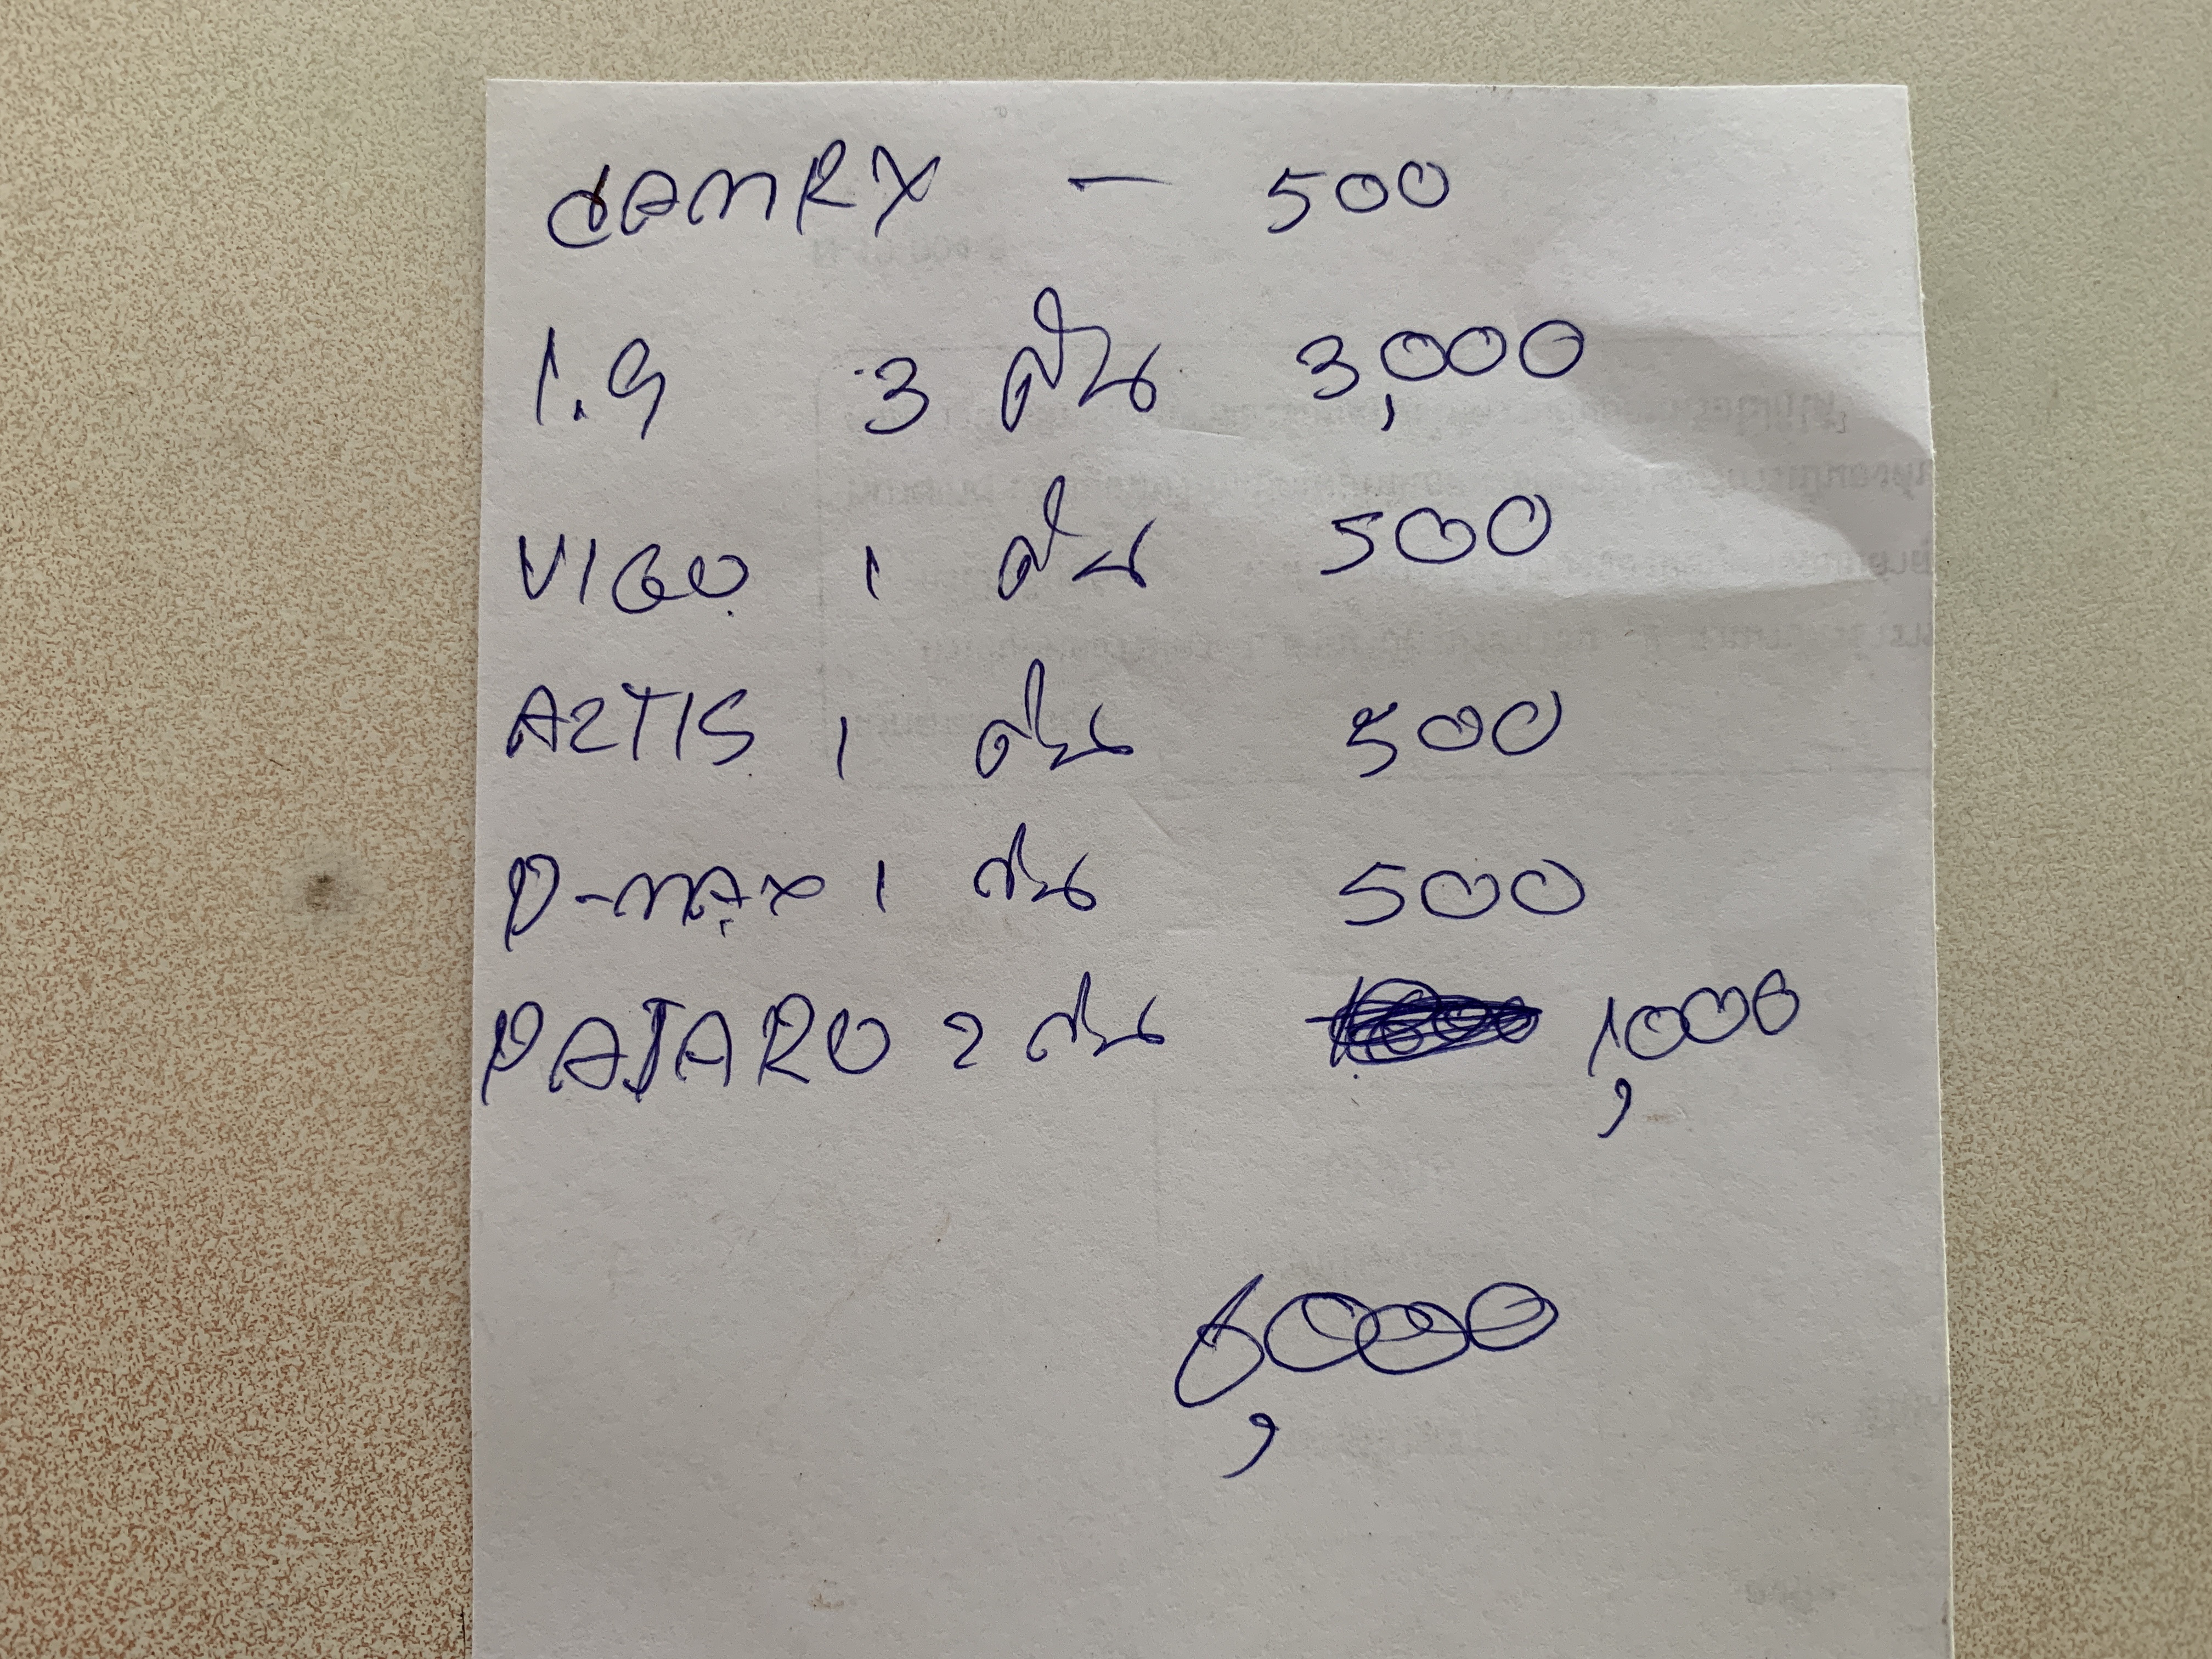 CAMRY — 500
1.9 3 คัน 3,000
VIGO 1 คัน 500
AZTIS 1 คัน 500
D-MAX 1 คัน 500
PAJARO 2 คัน 1,000
6,000